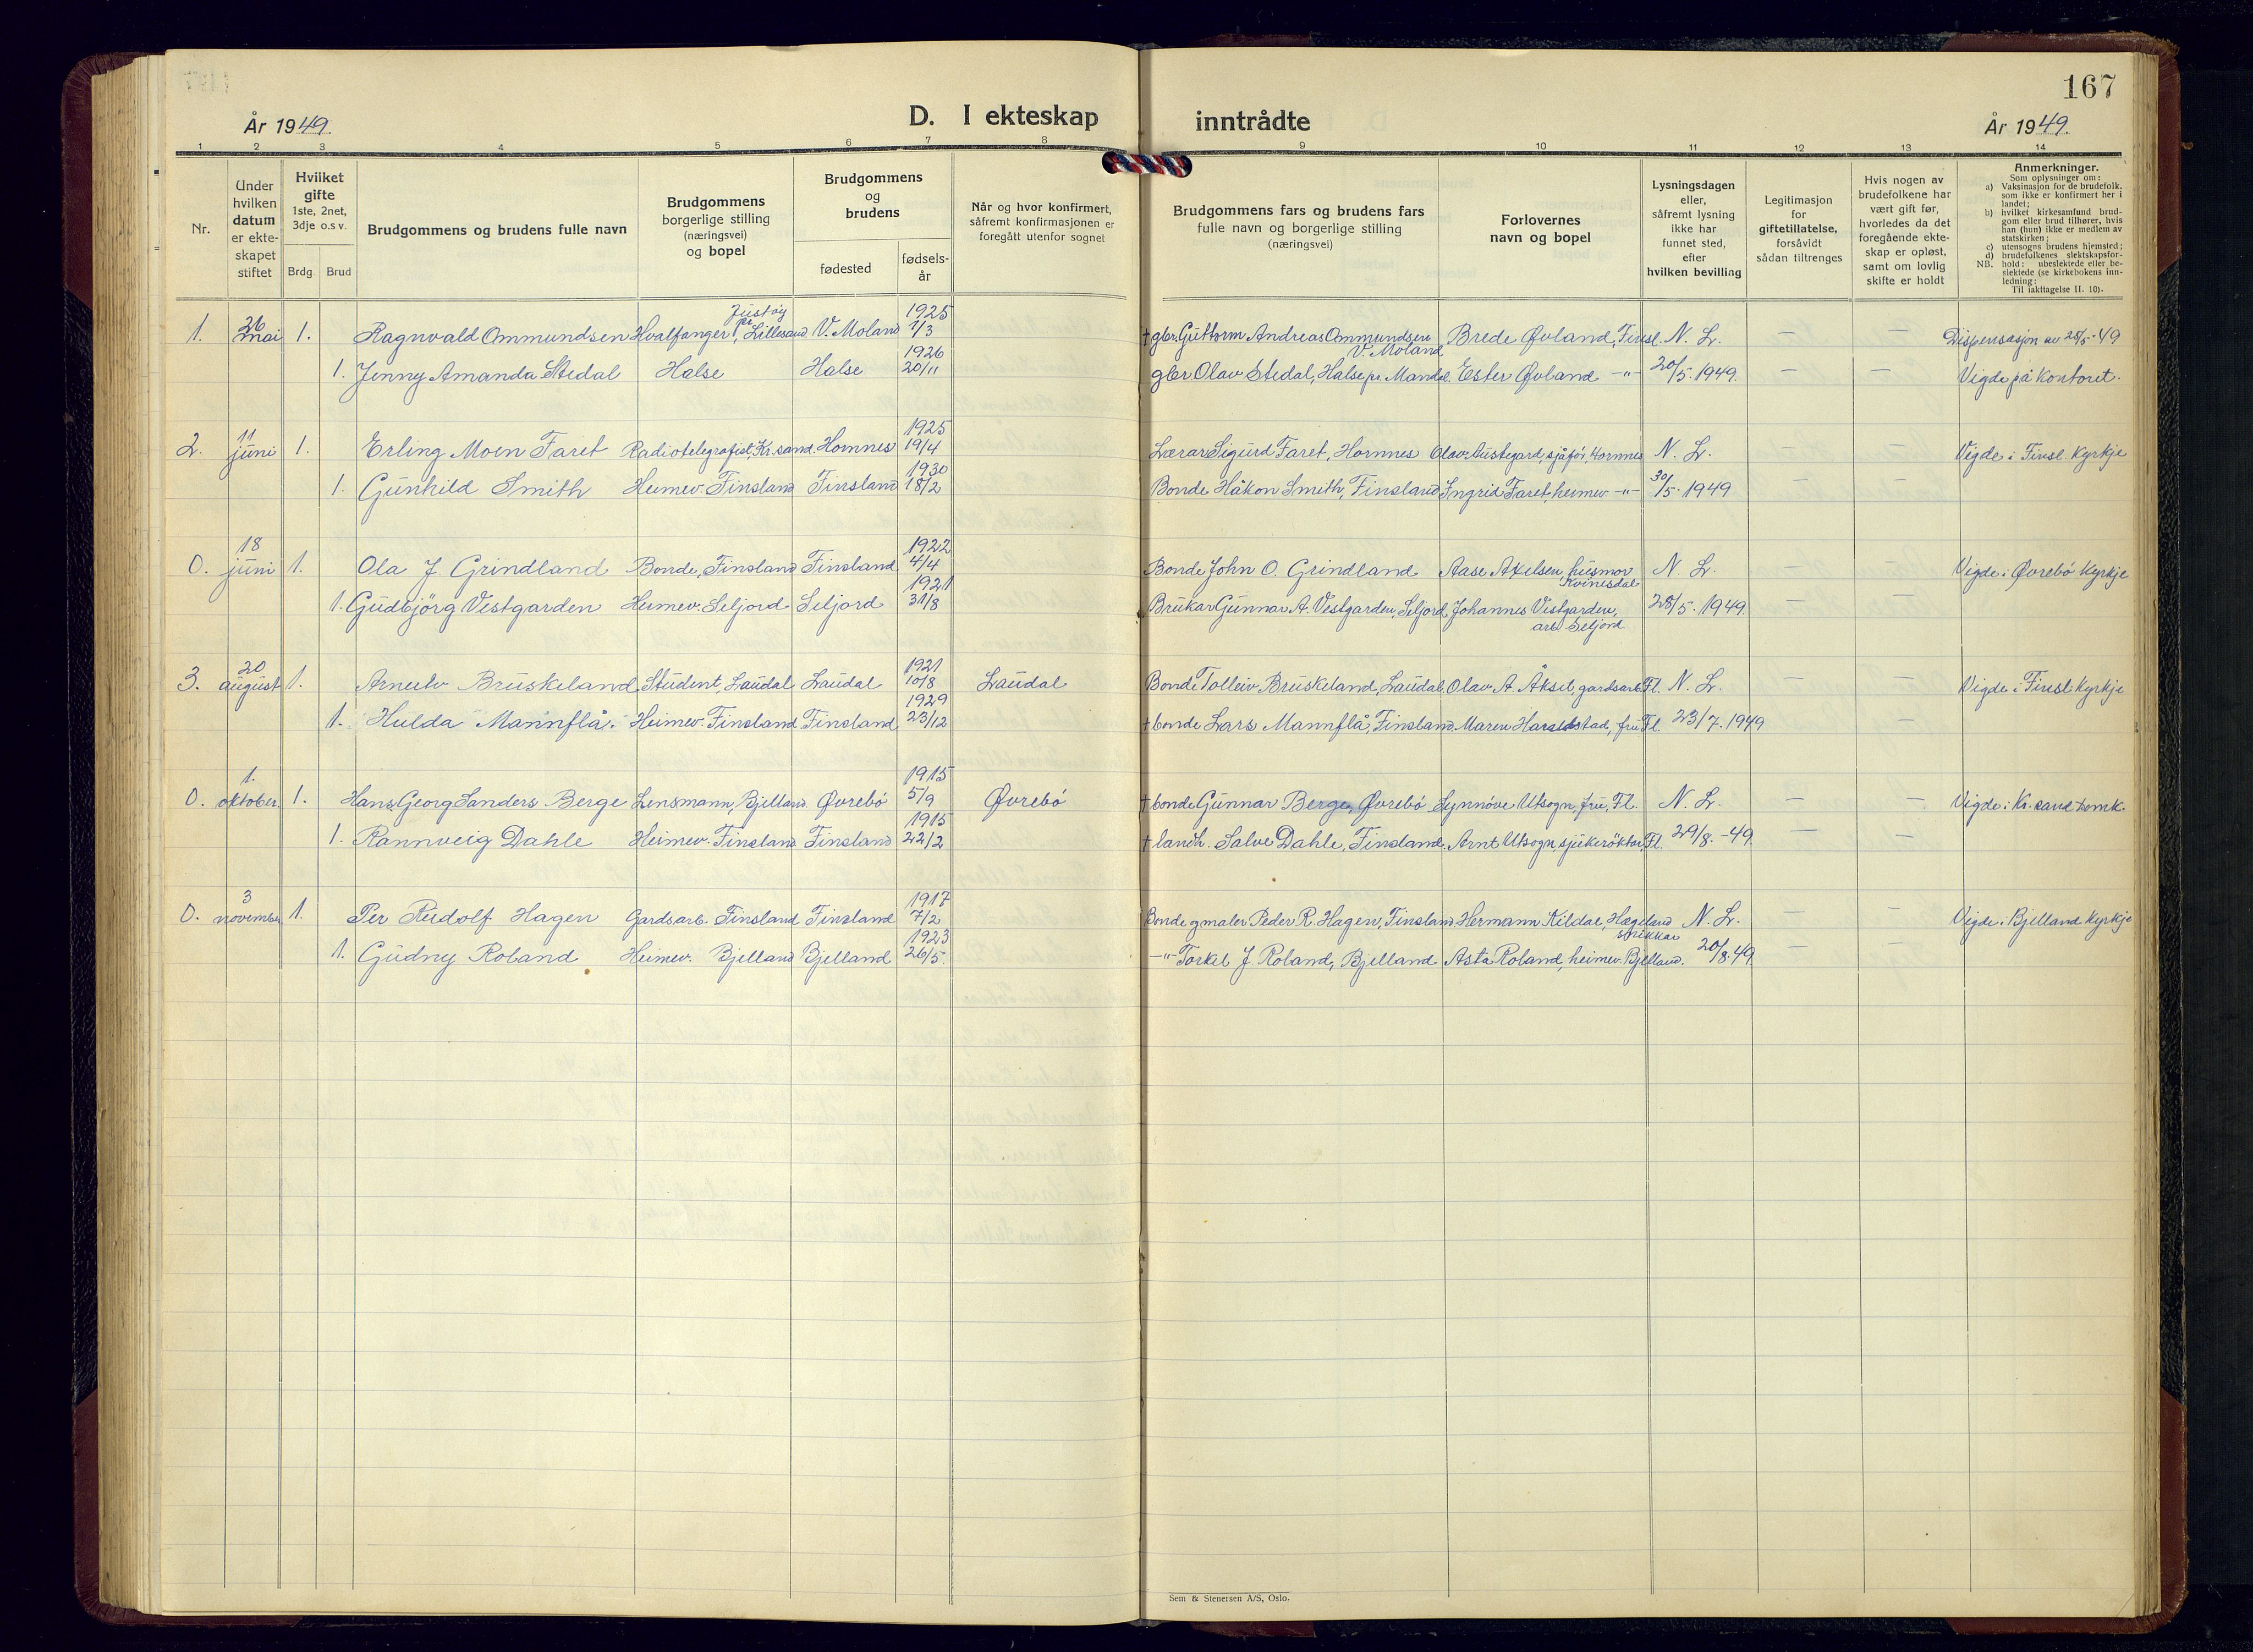 167
År 1949.
D. I ekteskap inntrådte
År 1949.
1 2 3 4 5 6 7 8 9 10 11 12 13 14
Nr.
Under hvilken datum er ekte-skapet stiftet
Hvilket gifte 1ste, 2net, 3dje o.s v.
Brdg. Brud
Brudgommens og brudens fulle navn
Brudgommens borgerlige stilling (næringsvei) og bopel
Brudgommens og brudens
fødested
fødsels-år
Når og hvor konfirmert, såfremt konfirmasjonen er foregått utenfor sognet
Brudgommens fars og brudens fars fulle navn og borgerlige stilling (næringsvei)
Forlovernes navn og bopel
Lysningsdagen eller, såfremt lysning ikke har funnet sted, efter hvilken bevilling
Legitimasjon for giftetillatelse, forsåvidt sådan tiltrenges
Hvis nogen av brudefolkene har vært gift før, hvorledes da det foregående ekte-skap er opløst, samt om lovlig skifte er holdt
Anmerkninger.
Som oplysninger om:
a) Vaksinasjon for de brudefolk, som ikke er konfirmert her i landet;
b) hvilket kirkesamfund brud-gom eller brud tilhører, hvis han (hun) ikke er medlem av statskirken;
c) utensogns brudens hjemsted;
d) brudefolkenes slektskapsfor-hold: ubeslektede eller be-slektede (se kirkebokens inn-ledning:
NB. Til iakttagelse II. 10).
1. 26 mai 1. Ragnvald Ommundsen Hvalfanger, Justøy pr. Lillesand V. Moland 1925 1/3 † gbr. Guttorm Andreas Ommundsen V. Moland Brede Øvland, Finsl. N. L. — — Dispensasjon av 25/5-49
1. Jenny Amanda Stedal Halse Halse 1926 20/11 gbr Olav Stedal, Halse pr. Mandal. Ester Øvland -"- 20/5. 1949. — — Vigde på kontoret.
2. 11 juni 1. Erling Moen Faret Radiotelegrafist, Kr.sand. Hornnes 1925 19/4 Lærar Sigurd Faret, Hornnes Olav Austegard, sjåfør, Hornnes N. L. — — Vigde i Finsl. Kyrkje
1. Gunhild Smith Heimev. Finsland Finsland 1930 18/2 Bonde Håkon Smith, Finsland Ingrid Faret, heimev. -"- 30/5. 1949 — —
0. 18 juni 1. Ola J. Grindland Bonde, Finsland Finsland 1922 4/4 Bonde John O. Grindland Aase Axelsen, husmor Kvinesdal N. L. — — Vigde i Øvrebö Kyrkje
1. Gudbjörg Vestgarden Heimev. Seljord Seljord 1921 31/8 Brukar Gunnar A. Vestgarden, Seljord Johannes Vestgarden, arb. Seljord 28/5. 1949 — —
3. 20 august 1. Arnulv Bruskeland Student, Laudal Laudal 1921 10/8 Laudal Bonde Tolleiv Bruskeland, Laudal Olav A. Åkset, gardsarb. Fl. N. L. — — Vigde i Finsl Kyrkje
1. Hulda Mannflå. Heimev. Finsland Finsland 1929 23/12 † bonde Lars Mannflå, Finsland. Maren Haraldstad, fru Fl. 23/7. 1949 —
0. 1. oktober. 1. Hans Georg Sanders Berge Lensmann, Bjelland Øvrebö 1915 5/9 Øvrebö † bonde Gunnar Berge, Øvrebö Synnöve Utsogn, fru, Fl. N. L. — — Vigde i Kr.sand Domk.
1. Rannveig Dahle Heimev. Finsland Finsland 1915 22/2 † landh. Salve Dahle, Finsland. Arnt Utsogn, sjukerøktar, Fl. 29/8.-49 — —
0. 3 november 1. Per Rudolf Hagen Gardsarb. Finsland Finsland 1917 7/2 Bonde og maler Peder R. Hagen, Finsland Hermann Kildal, Hægeland snikkar N. L. — — Vigde i Bjelland Kyrkje
1. Gudny Roland Heimev. Bjelland Bjelland 1923 26/5. -"- Torkel J. Roland, Bjelland Asta Roland, heimev. Bjelland. 20/8.49 — —
Sem & Stenersen A/S, Oslo.